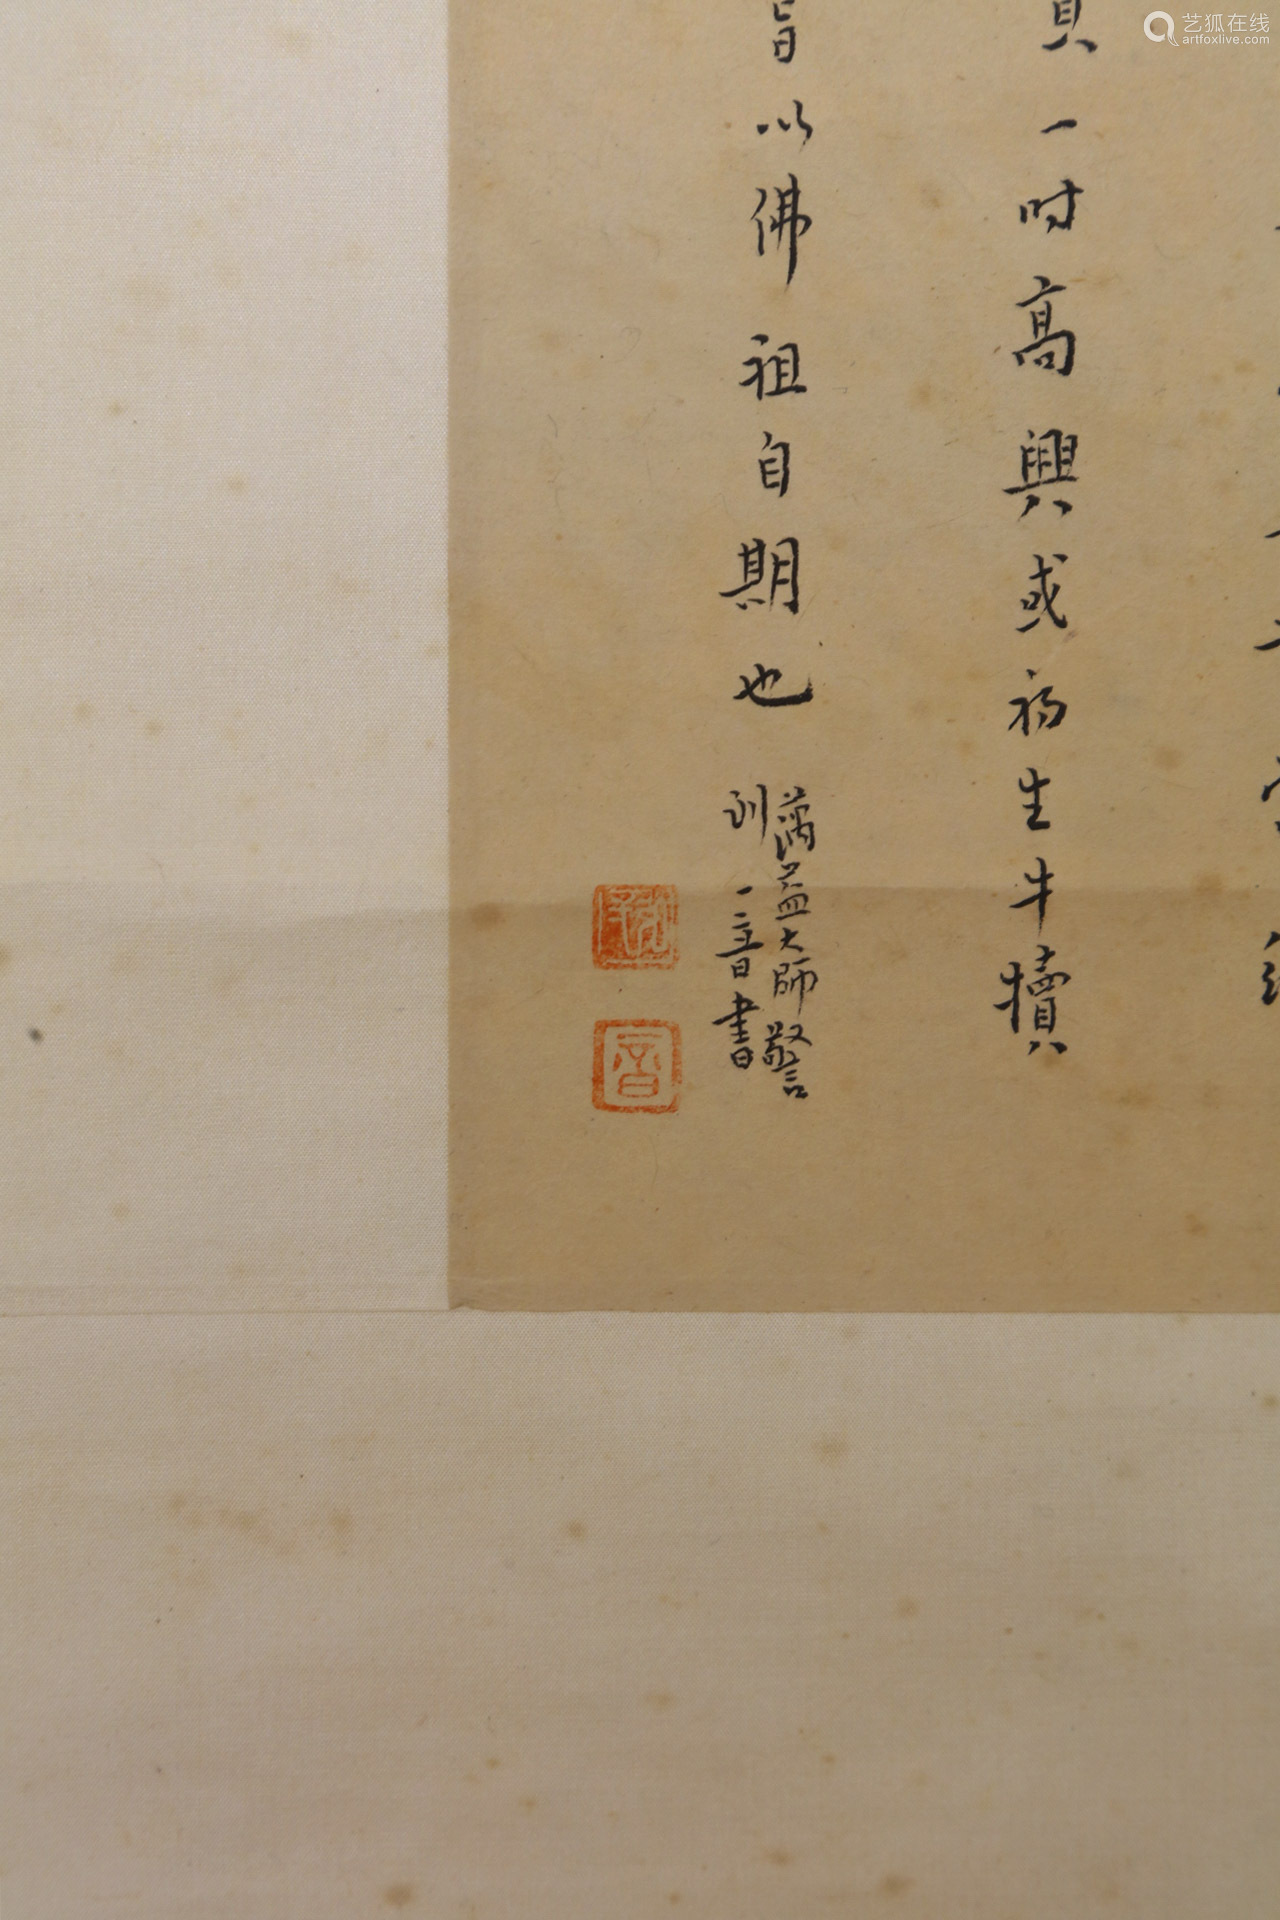 艺狐在线
artfoxlive.com
一时高興或初生牛犢
旨以佛祖自期也
蕅益大師警
訓 一音書
一音